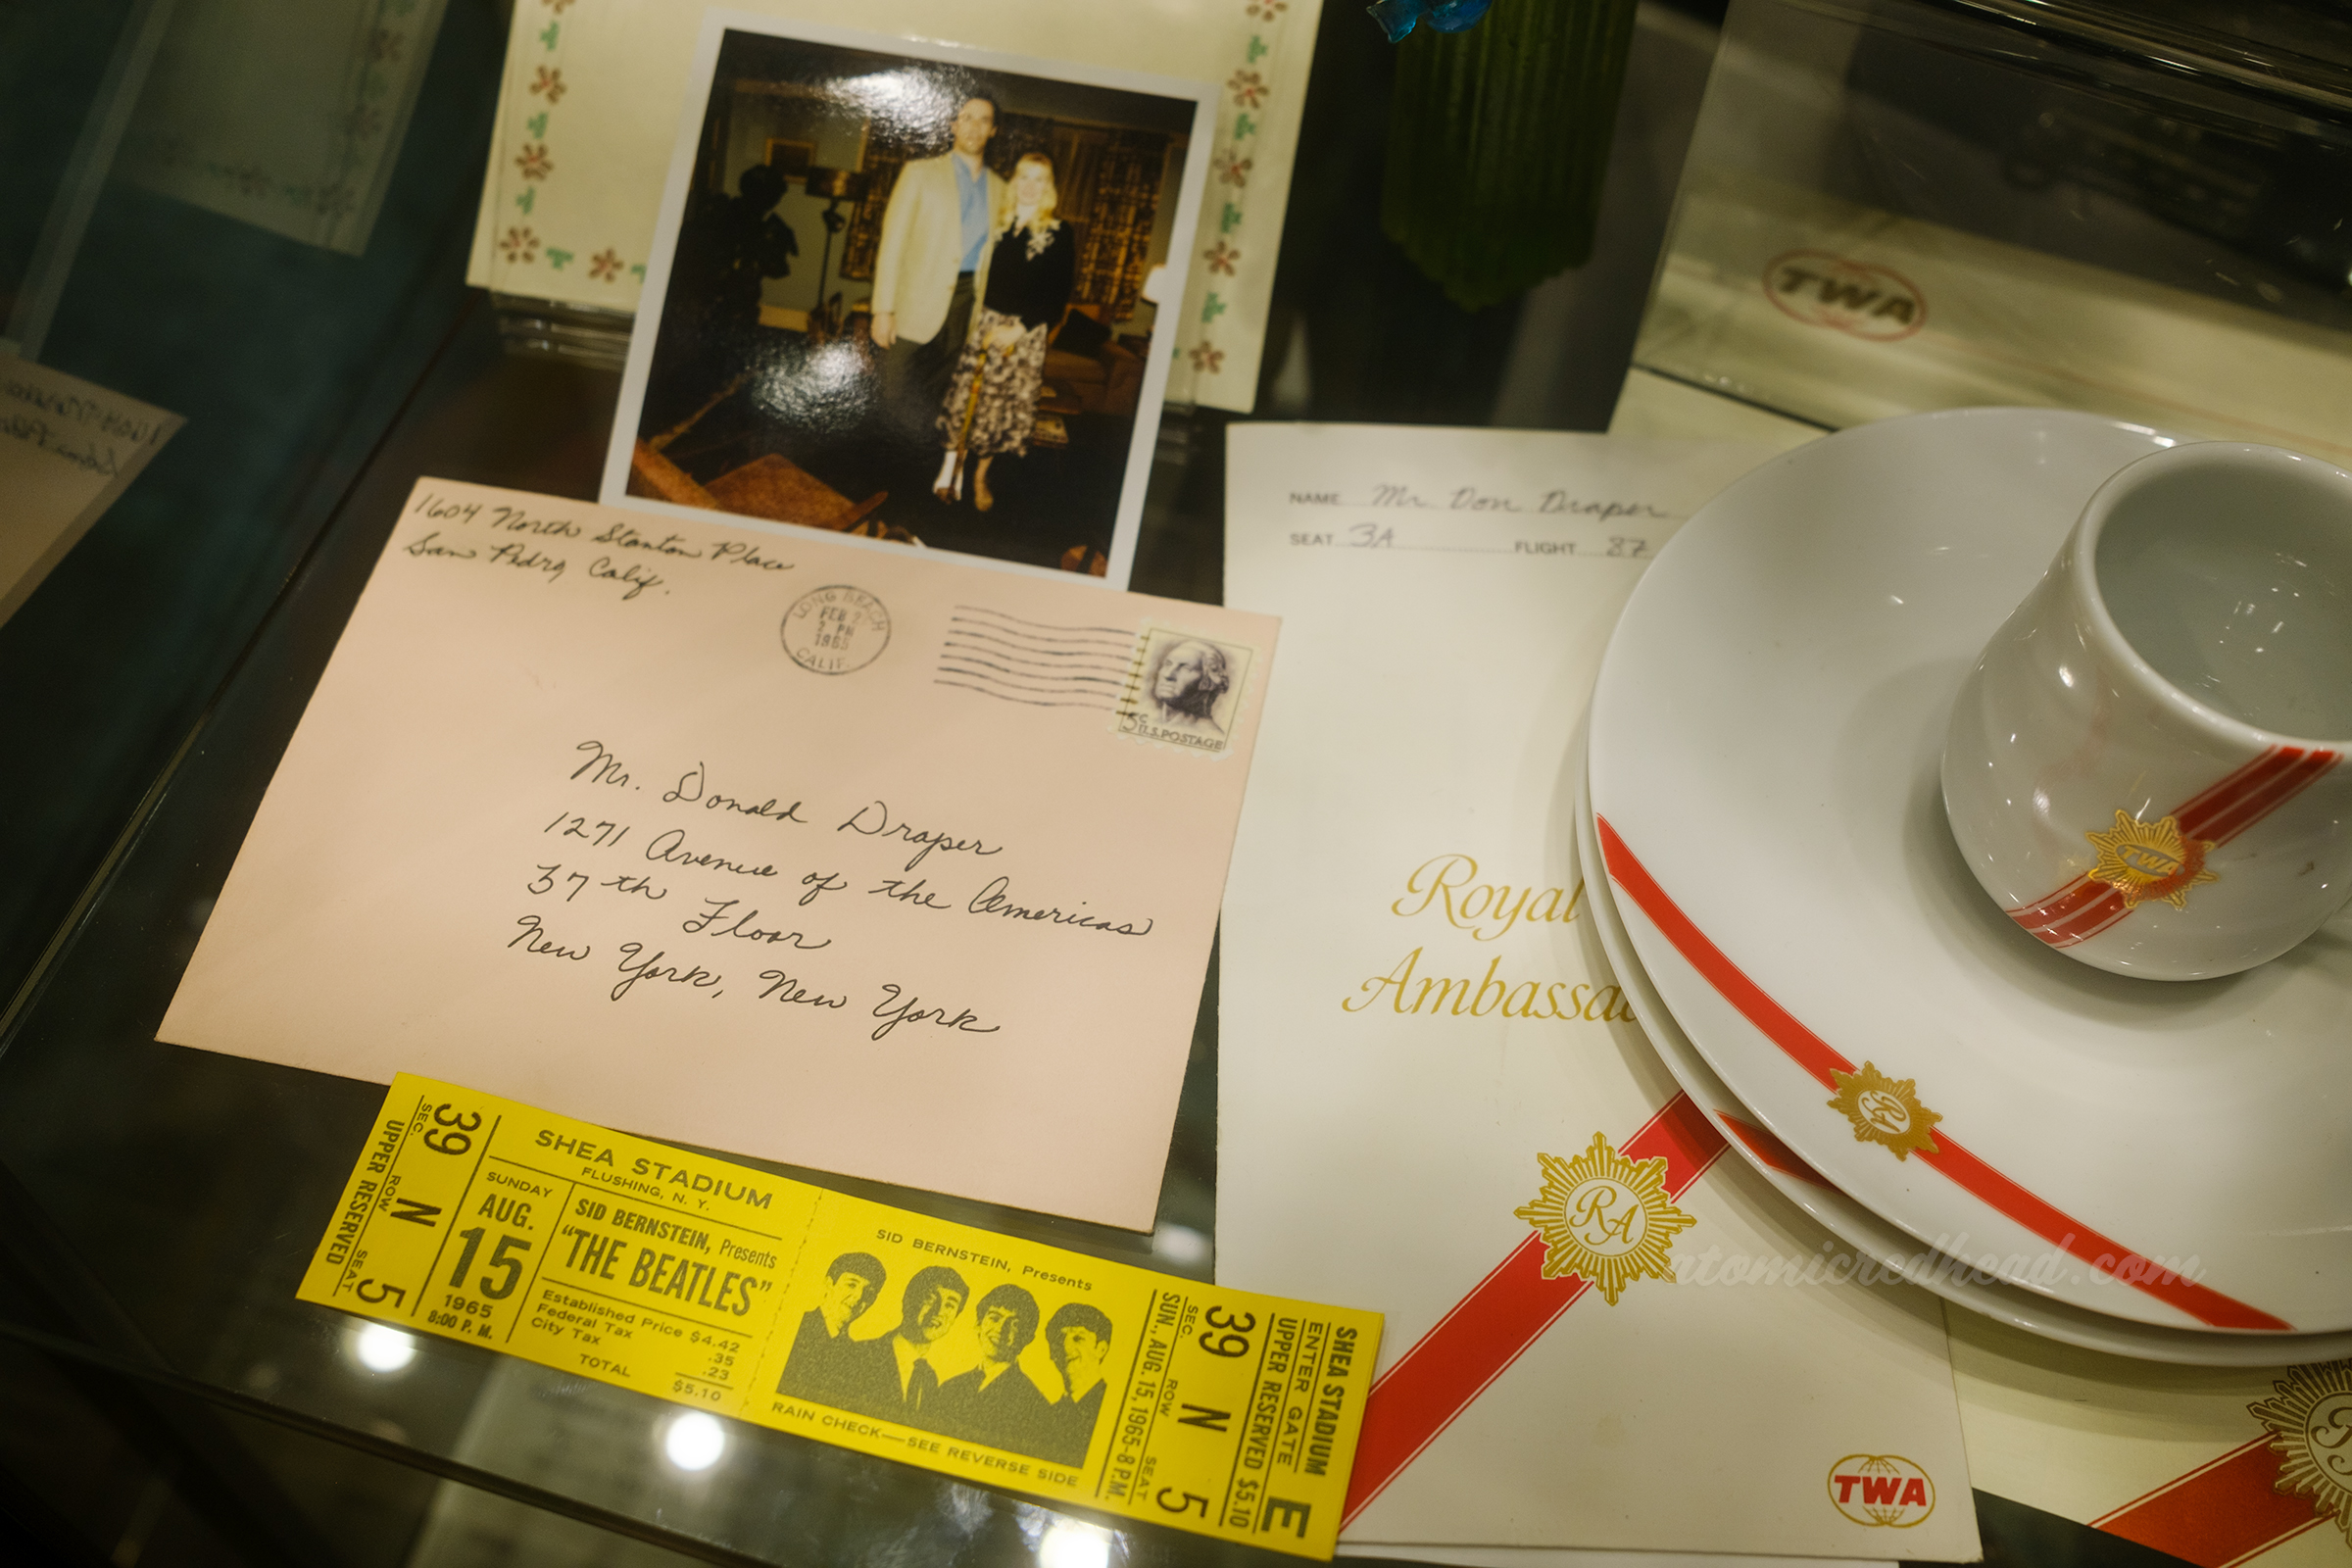 TWA
NAME Mr. Don Draper
SEAT 3A FLIGHT 37
1604 North Stanton Place
San Pedro Calif.
LONG BEACH
FEB 2
2 PM
1965
CALIF.
5c
U.S. POSTAGE
Mr. Donald Draper
1271 Avenue of the Americas
37th Floor
New York, New York
Royal
Ambassad
TWA
RA
RA
TWA
SEC. 39 ROW N SEAT 5
UPPER RESERVED
SHEA STADIUM
FLUSHING, N. Y.
SUNDAY
AUG.
15
1965
8:00 P. M.
SID BERNSTEIN, Presents
"THE BEATLES"
Established Price $4.42
Federal Tax .35
City Tax .23
TOTAL $5.10
SID BERNSTEIN, Presents
RAIN CHECK—SEE REVERSE SIDE
SUN., AUG. 15, 1965-8 P.M.
SEC. 39 ROW N SEAT 5
UPPER RESERVED $5.10
ENTER GATE E
SHEA STADIUM
atomicredhead.com